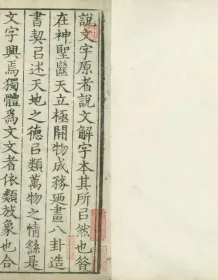 說文字原者說文解字本其所㠯然也昝
在神聖繼天立極開物成務廼畫八卦造
書契㠯述天地之德㠯類萬物之情繇是
文字興焉獨體爲文文者依類放象也合